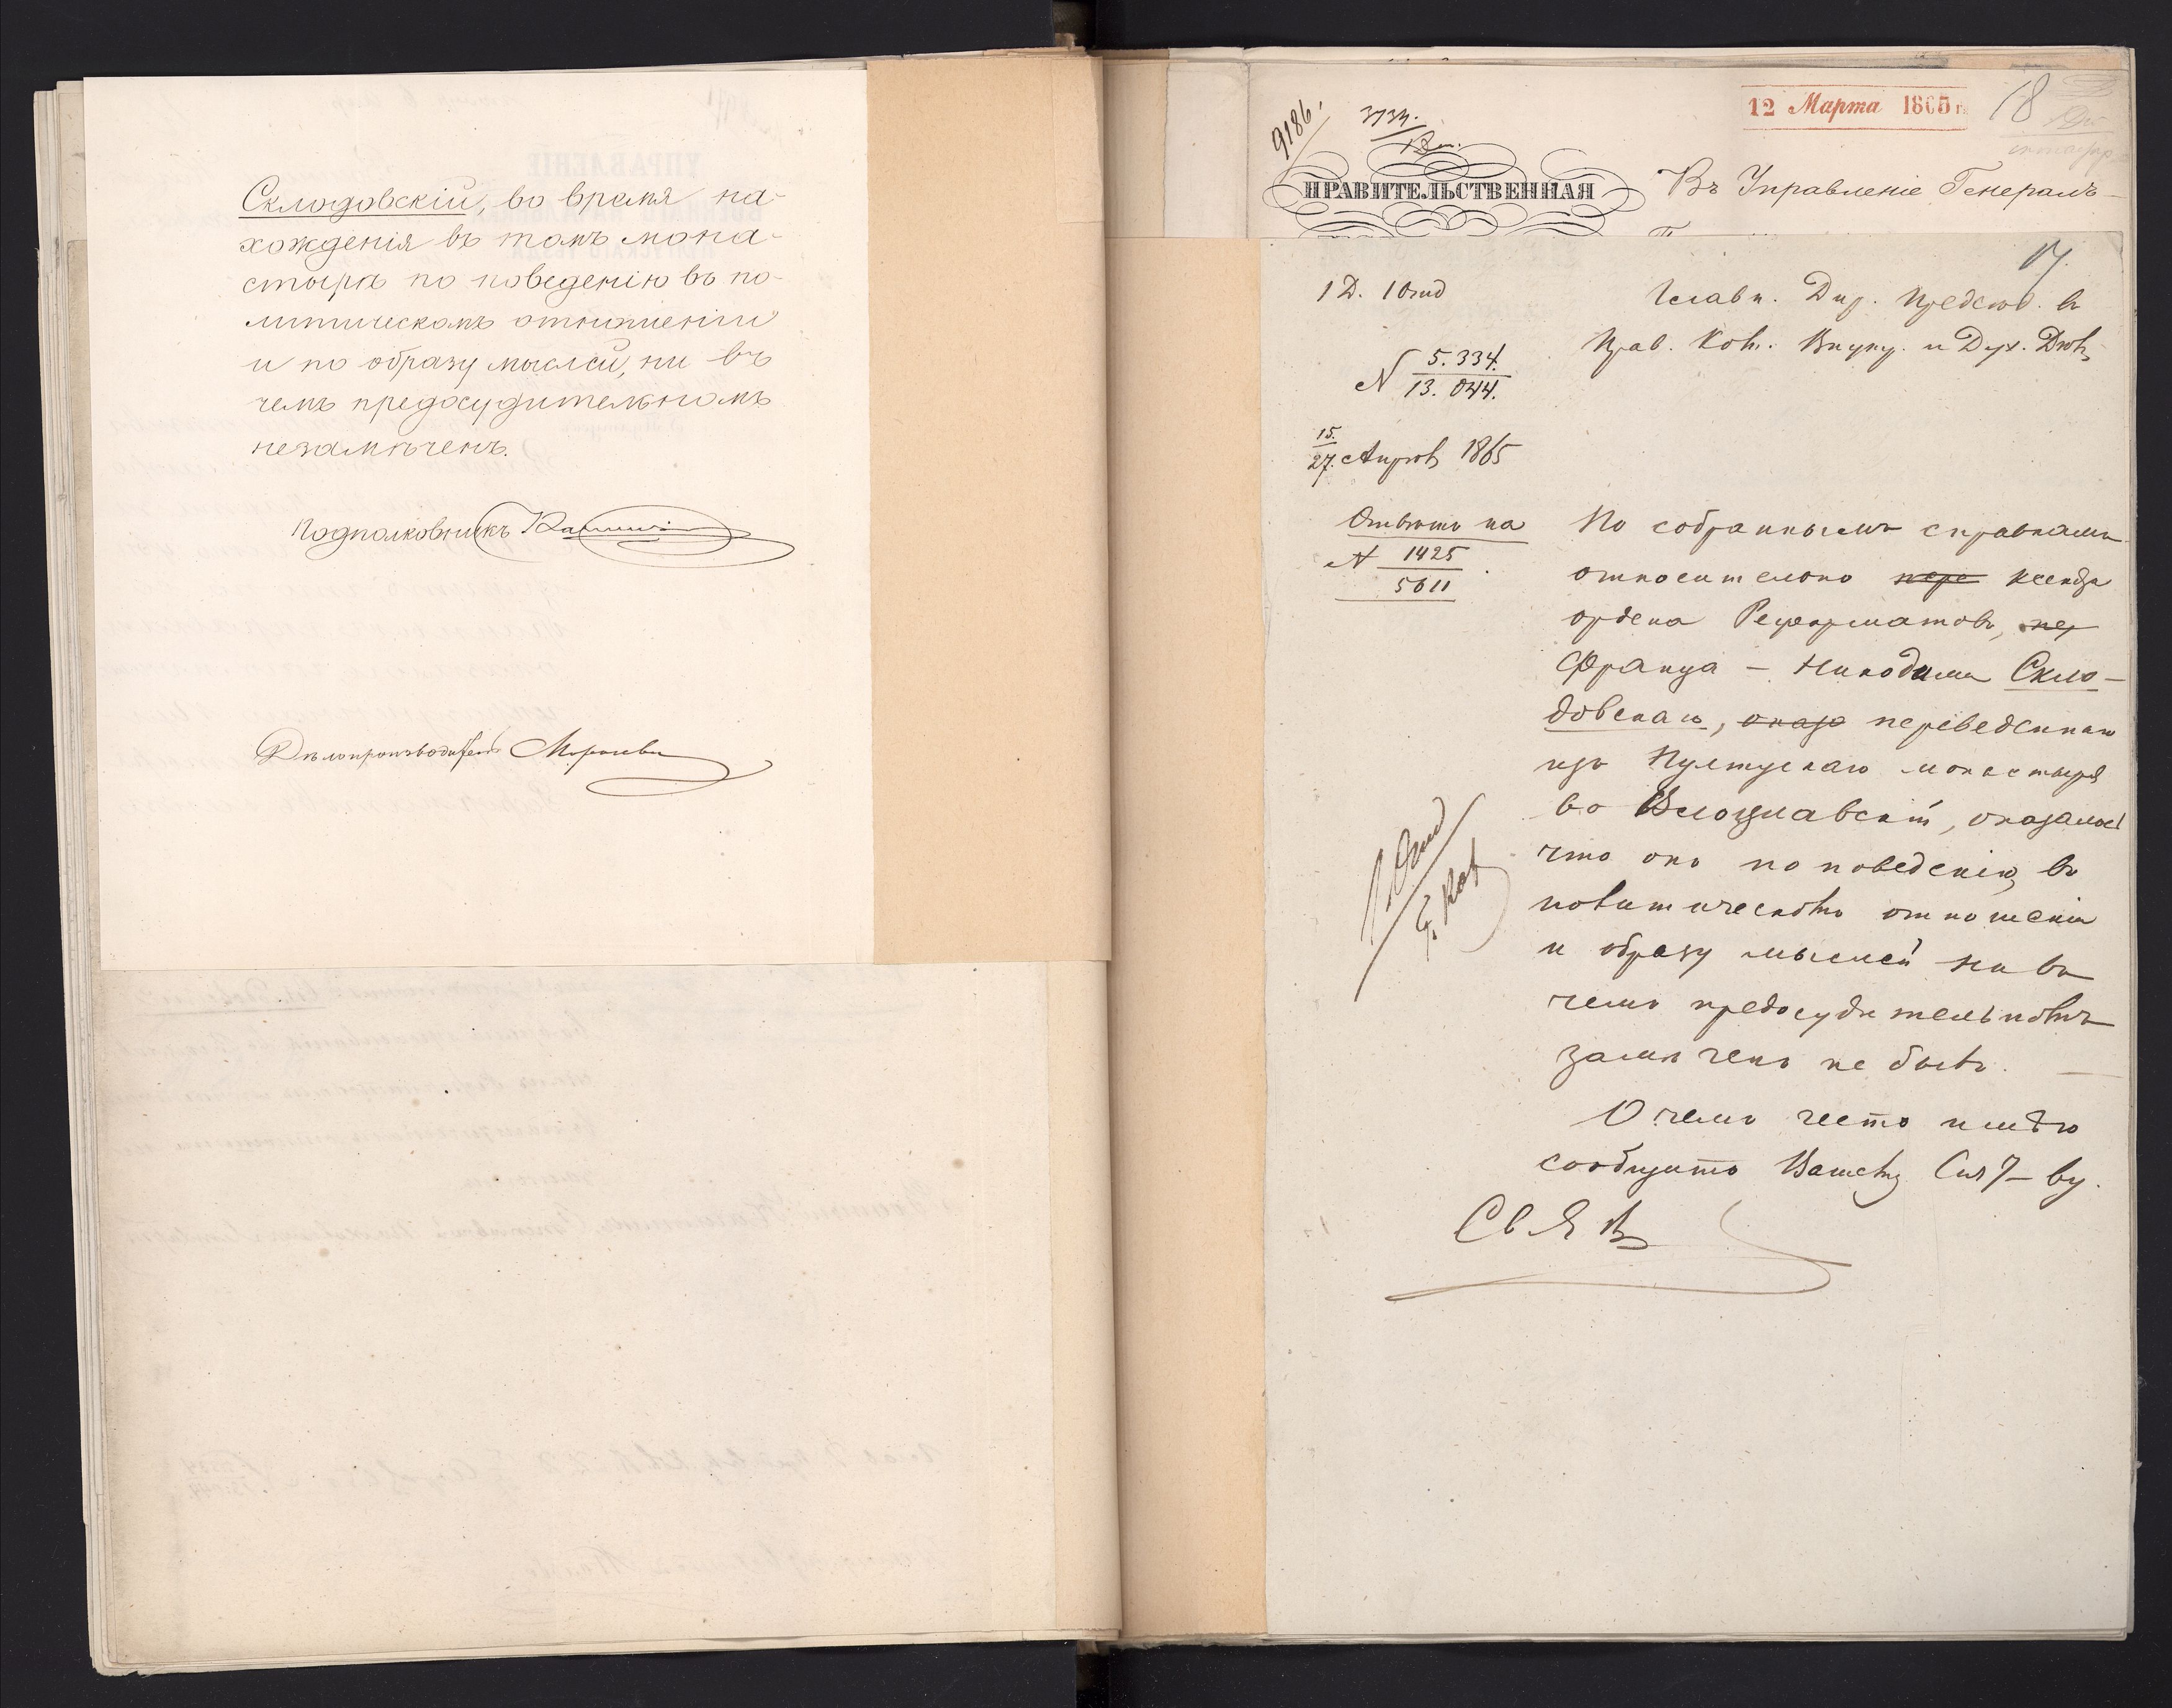 Склодовскій, во время на-
хожденія въ томъ мона-
стырѣ по поведенію въ по-
литическомъ отношеніи
и по образу мыслей, ни въ
чемъ предосудительномъ
незамѣченъ.
Подполковникъ
Дѣлопроизводитель
12 Марта 1865 г.
18
9186.
3734.
ПРАВИТЕЛЬСТВЕННАЯ
Въ Управленіе Генералъ-
17.
1 Д. 1 Отд
Главн. Дир. Предсѣд. въ
Прав. Ком. Внутр. и Дух. Дѣлъ
N 5.334.
13.044.
15.
27. Апрѣля 1865
Отвѣтъ на
N 1425
5611
По собраннымъ справкамъ
относительно пере ксендза
ордена Реформатовъ,
Франца - Никодима Скло-
довскаго, оказа переведеннаго
изъ Пултускаго монастыря
во Влоцлавскій, оказалось
что онъ по поведенію въ
политическомъ отношеніи
и образу мыслей ни въ
чемъ предосудительномъ
замѣченъ не былъ.
О чемъ честь имѣю
сообщить Вашему Сият-ву.